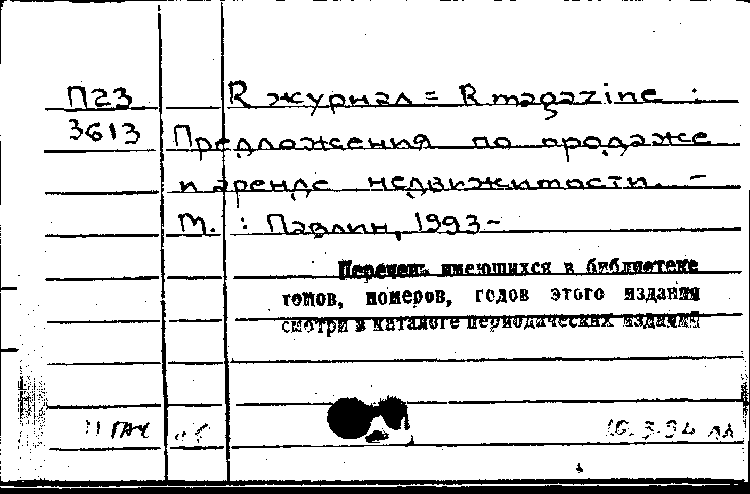 П23 R журнал = R magazine :
3613 Предложения по продаже
и аренде недвижимости. –
М. : Павлин, 1993–
Перечень имеющихся в библиотеке
томов, номеров, годов этого издания
смотри в каталоге периодических изданий
16.3.94